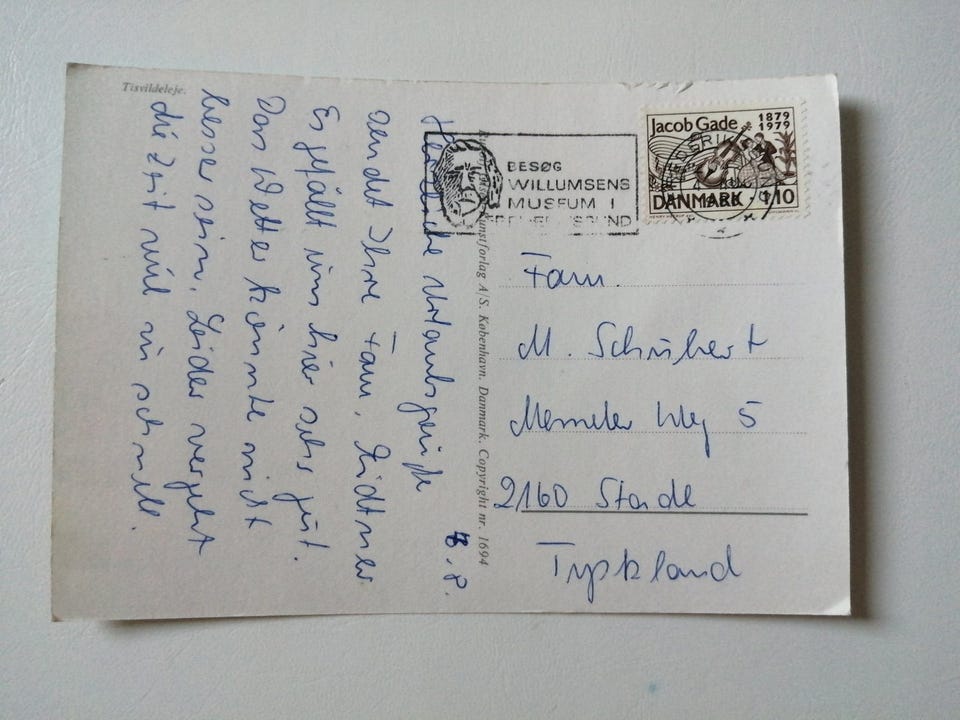 Tisvildeleje.
Herzliche Urlaubsgrüße
sendet Ihre Fam.
Es gefällt uns hier sehr gut.
Das Wetter könnte nicht
besser sein. Leider vergeht
die Zeit viel zu schnell.
Kunstforlag A/S. København. Danmark. Copyright nr. 1694
BESØG
WILLUMSENS
MUSEUM I
FREDERIKSSUND
Jacob Gade 1879
1979
DANMARK 110
Fam.
M. Schubert
Memeler Weg 5
2160 Stade
Tyskland